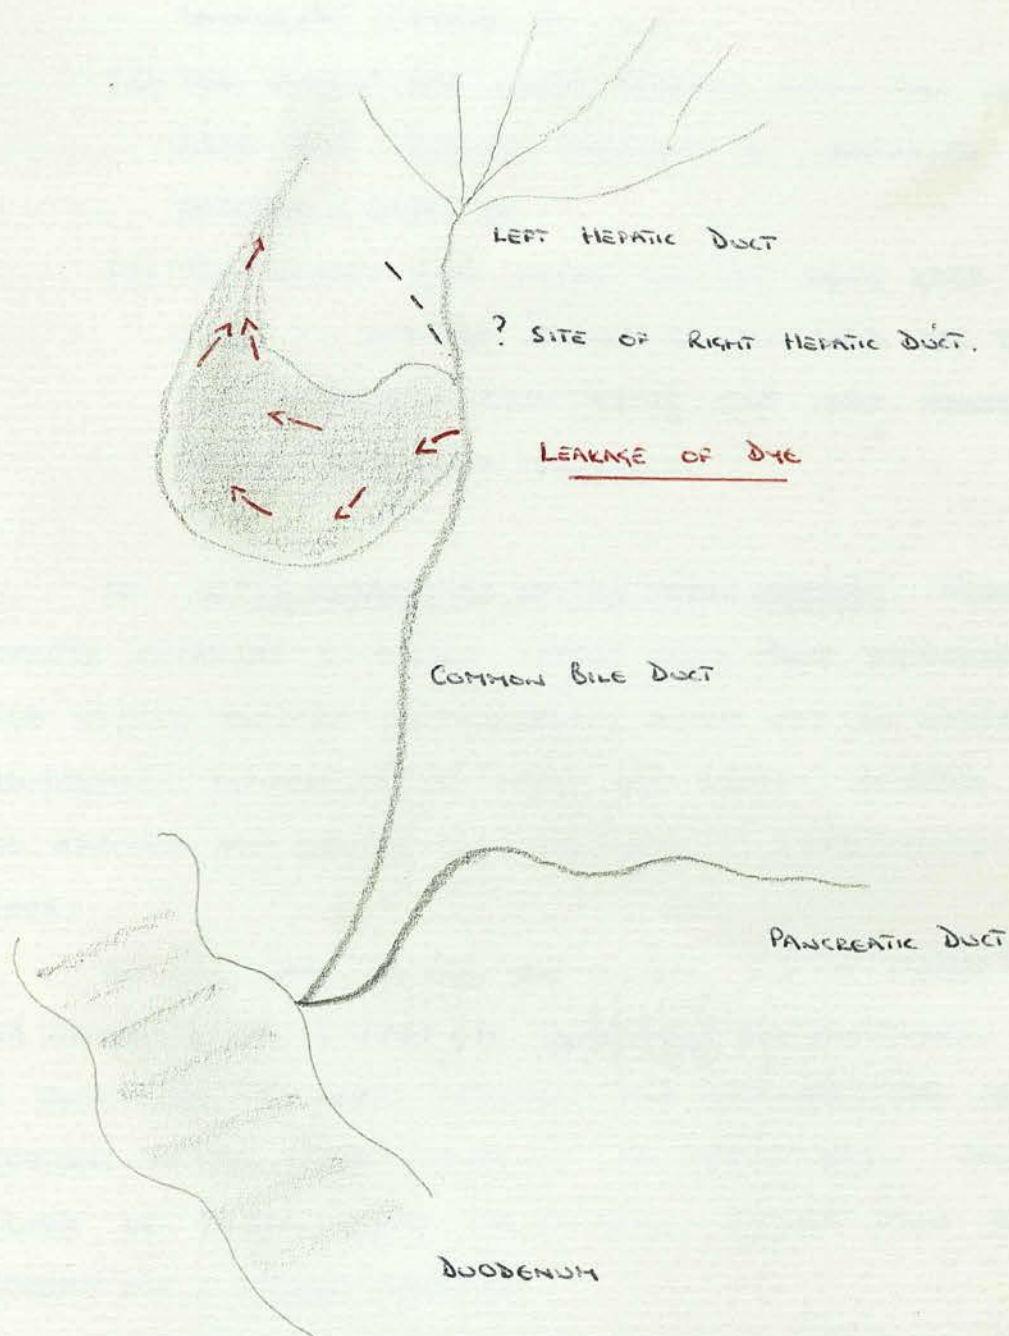 LEFT HEPATIC DUCT
? SITE OF RIGHT HEPATIC DUCT.
LEAKAGE OF DYE
COMMON BILE DUCT
PANCREATIC DUCT
DUODENUM